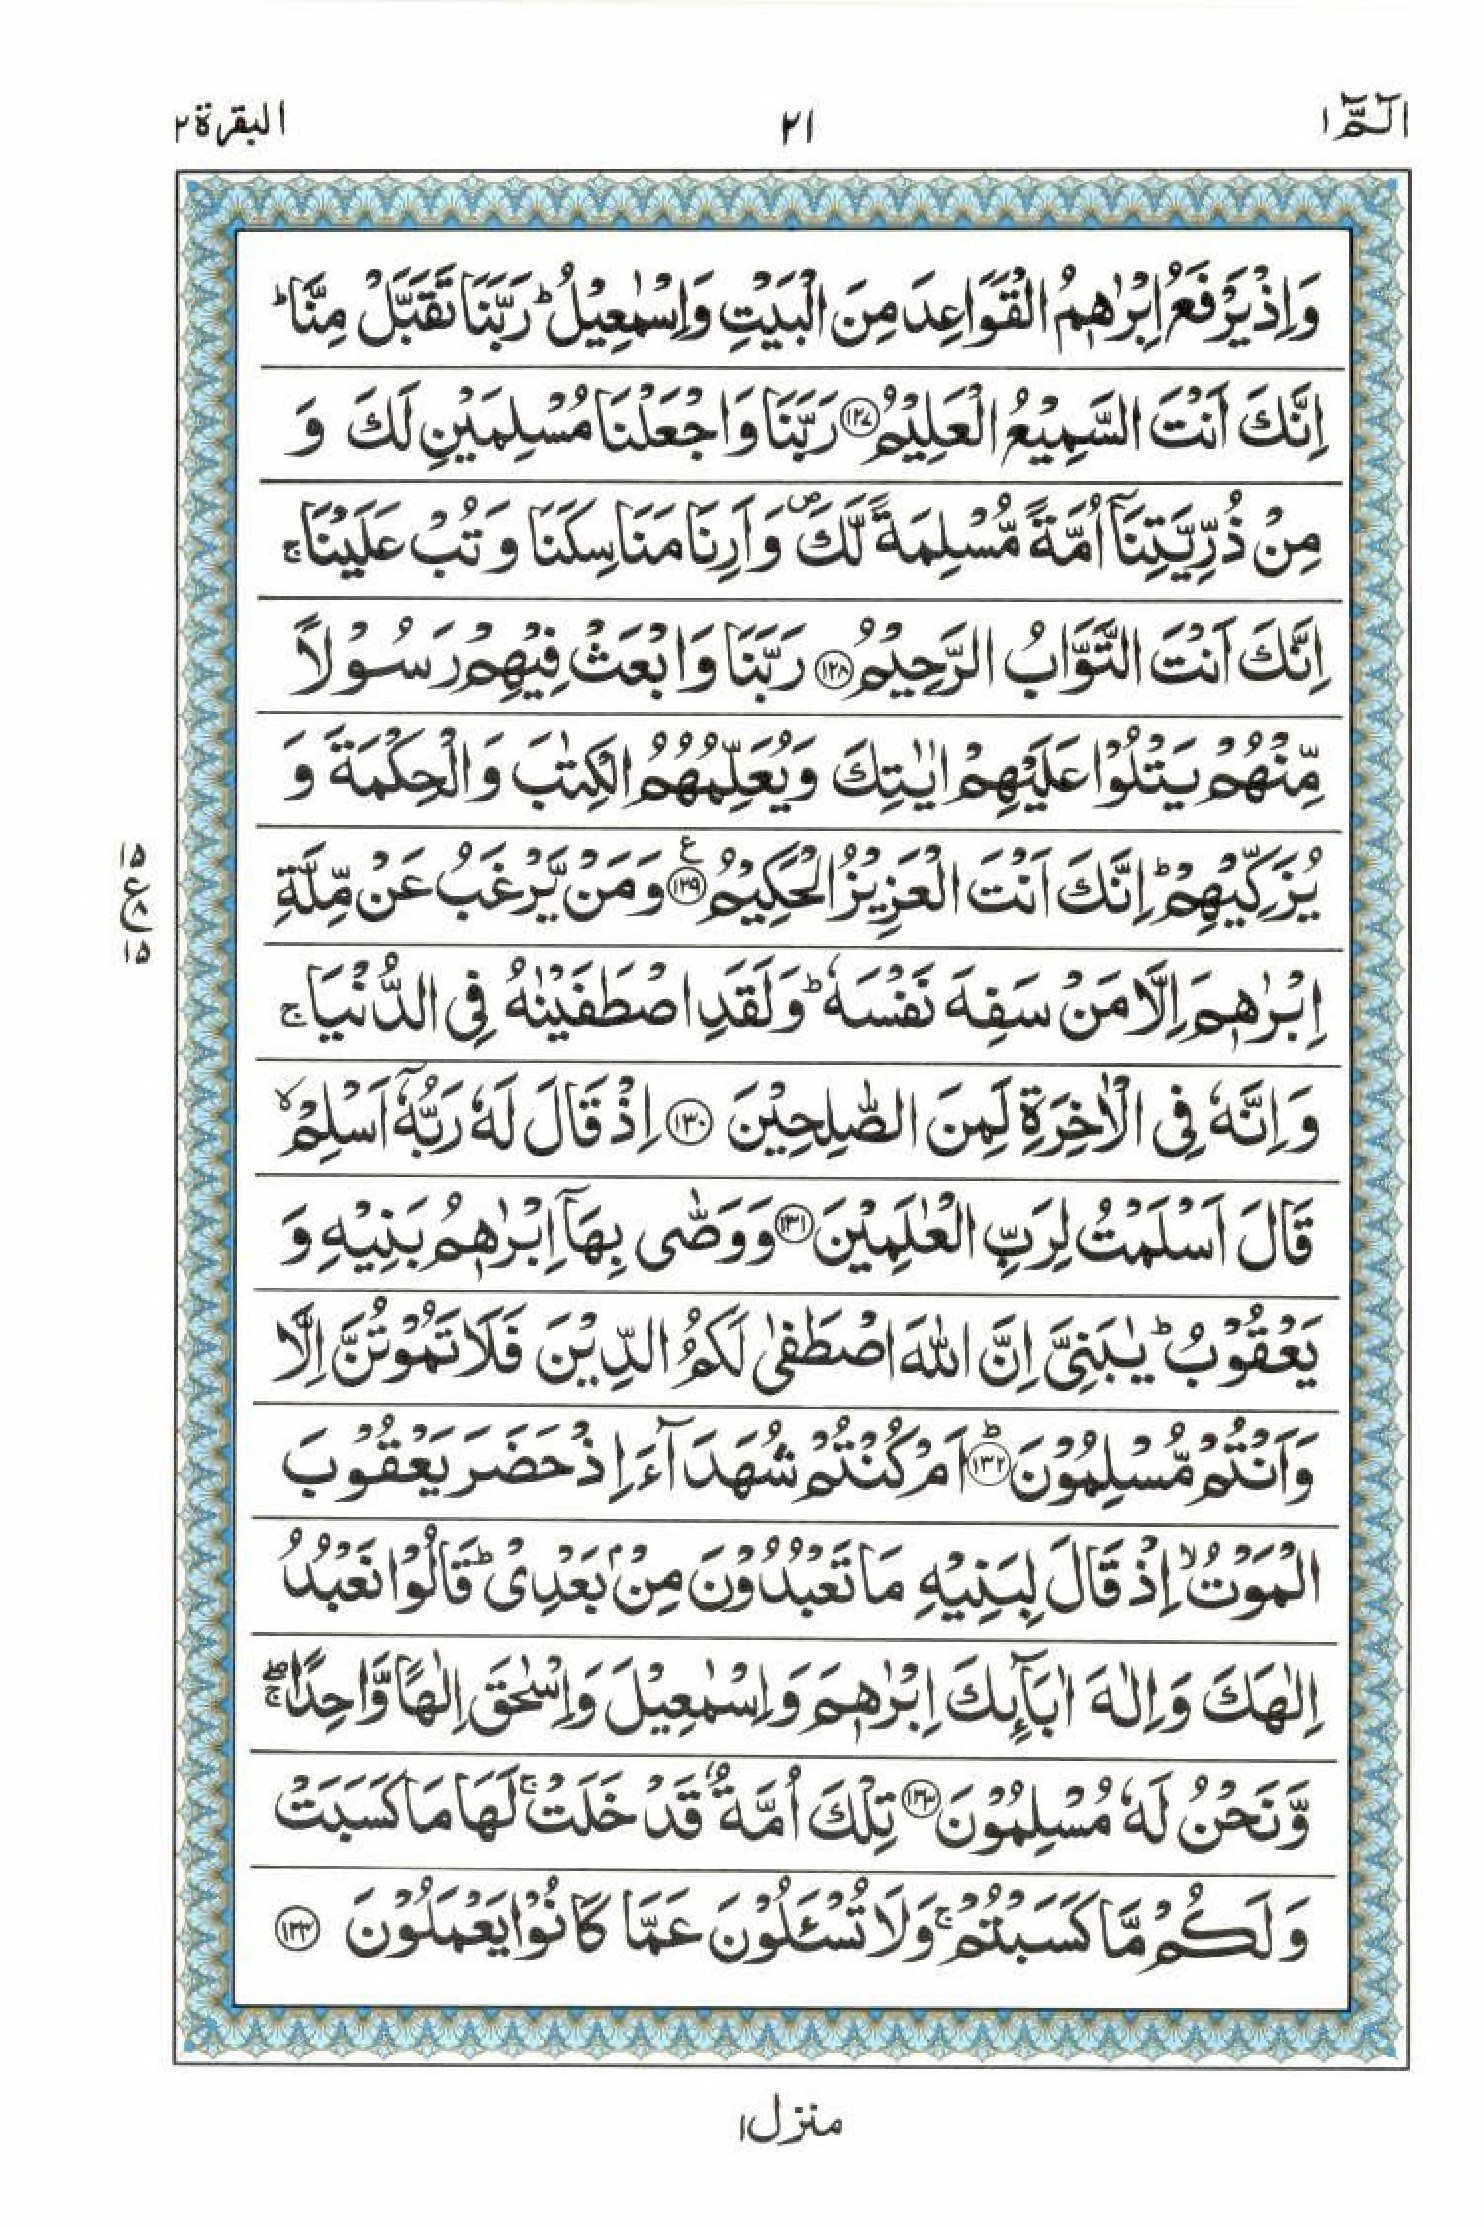 الٓمّٓ ۱
۲۱
البقرة ۲
وَاِذْ يَرْفَعُ اِبْرٰهٖمُ الْقَوَاعِدَ مِنَ الْبَيْتِ وَاِسْمٰعِيْلُ ؕ رَبَّنَا تَقَبَّلْ مِنَّا ؕ
اِنَّكَ اَنْتَ السَّمِيْعُ الْعَلِيْمُ ﴿۱۲۷﴾ رَبَّنَا وَاجْعَلْنَا مُسْلِمَيْنِ لَكَ وَ
مِنْ ذُرِّيَّتِنَاۤ اُمَّةً مُّسْلِمَةً لَّكَ ۪ وَاَرِنَا مَنَاسِكَنَا وَتُبْ عَلَيْنَا ۚ
اِنَّكَ اَنْتَ التَّوَّابُ الرَّحِيْمُ ﴿۱۲۸﴾ رَبَّنَا وَابْعَثْ فِيْهِمْ رَسُوْلًا
مِّنْهُمْ يَتْلُوْا عَلَيْهِمْ اٰيٰتِكَ وَيُعَلِّمُهُمُ الْكِتٰبَ وَالْحِكْمَةَ وَ
يُزَكِّيْهِمْ ؕ اِنَّكَ اَنْتَ الْعَزِيْزُ الْحَكِيْمُ ﴿۱۲۹﴾ ع وَمَنْ يَّرْغَبُ عَنْ مِّلَّةِ
۱۵
ع
۸
۱۵
اِبْرٰهٖمَ اِلَّا مَنْ سَفِهَ نَفْسَهٗ ؕ وَلَقَدِ اصْطَفَيْنٰهُ فِى الدُّنْيَا ۚ
وَاِنَّهٗ فِى الْاٰخِرَةِ لَمِنَ الصّٰلِحِيْنَ ﴿۱۳۰﴾ اِذْ قَالَ لَهٗ رَبُّهٗۤ اَسْلِمْ ۙ
قَالَ اَسْلَمْتُ لِرَبِّ الْعٰلَمِيْنَ ﴿۱۳۱﴾ وَوَصّٰى بِهَاۤ اِبْرٰهٖمُ بَنِيْهِ وَ
يَعْقُوْبُ ؕ يٰبَنِىَّ اِنَّ اللّٰهَ اصْطَفٰى لَكُمُ الدِّيْنَ فَلَا تَمُوْتُنَّ اِلَّا
وَاَنْتُمْ مُّسْلِمُوْنَ ؕ﴿۱۳۲﴾ اَمْ كُنْتُمْ شُهَدَآءَ اِذْ حَضَرَ يَعْقُوْبَ
الْمَوْتُ ۙ اِذْ قَالَ لِبَنِيْهِ مَا تَعْبُدُوْنَ مِنْۢ بَعْدِىْ ؕ قَالُوْا نَعْبُدُ
اِلٰهَكَ وَاِلٰهَ اٰبَآئِكَ اِبْرٰهٖمَ وَاِسْمٰعِيْلَ وَاِسْحٰقَ اِلٰهًا وَّاحِدًا ۖۚ
وَّنَحْنُ لَهٗ مُسْلِمُوْنَ ﴿۱۳۳﴾ تِلْكَ اُمَّةٌ قَدْ خَلَتْ ۚ لَهَا مَا كَسَبَتْ
وَلَكُمْ مَّا كَسَبْتُمْ ۚ وَلَا تُسْـَٔلُوْنَ عَمَّا كَانُوْا يَعْمَلُوْنَ ﴿۱۳۴﴾
منزل ۱